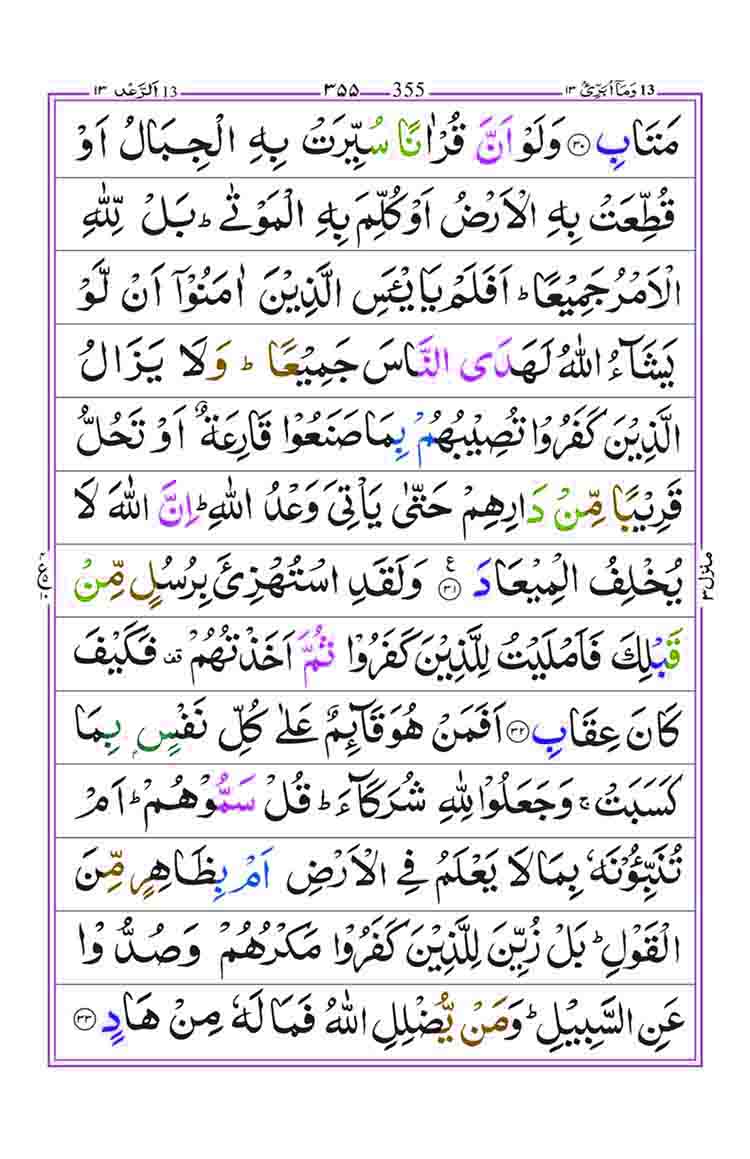 13 وَمَاۤ اُبَرِّئُ ١٣ 355 ٣٥٥ 13 اَلرَّعْد ١٣
مَتَابِ ﴿۳۰﴾ وَلَوْ اَنَّ قُرْاٰنًا سُيِّرَتْ بِهِ الْجِبَالُ اَوْ
قُطِّعَتْ بِهِ الْاَرْضُ اَوْ كُلِّمَ بِهِ الْمَوْتٰى ؕ بَلْ لِّلّٰهِ
الْاَمْرُ جَمِيْعًا ؕ اَفَلَمْ يَايْـَٔسِ الَّذِيْنَ اٰمَنُوْۤا اَنْ لَّوْ
يَشَآءُ اللّٰهُ لَهَدَى النَّاسَ جَمِيْعًا ؕ وَلَا يَزَالُ
الَّذِيْنَ كَفَرُوْا تُصِيْبُهُمْ بِمَا صَنَعُوْا قَارِعَةٌ اَوْ تَحُلُّ
قَرِيْبًا مِّنْ دَارِهِمْ حَتّٰى يَاْتِىَ وَعْدُ اللّٰهِ ؕ اِنَّ اللّٰهَ لَا
يُخْلِفُ الْمِيْعَادَ ﴿۳۱﴾ ع وَلَقَدِ اسْتُهْزِئَ بِرُسُلٍ مِّنْ
قَبْلِكَ فَاَمْلَيْتُ لِلَّذِيْنَ كَفَرُوْا ثُمَّ اَخَذْتُهُمْ قف فَكَيْفَ
كَانَ عِقَابِ ﴿۳۲﴾ اَفَمَنْ هُوَ قَآئِمٌ عَلٰى كُلِّ نَفْسٍۭ بِمَا
كَسَبَتْ ۚ وَجَعَلُوْا لِلّٰهِ شُرَكَآءَ ؕ قُلْ سَمُّوْهُمْ ؕ اَمْ
تُنَبِّـُٔوْنَهٗ بِمَا لَا يَعْلَمُ فِى الْاَرْضِ اَمْ بِظَاهِرٍ مِّنَ
الْقَوْلِ ؕ بَلْ زُيِّنَ لِلَّذِيْنَ كَفَرُوْا مَكْرُهُمْ وَصُدُّوْا
عَنِ السَّبِيْلِ ؕ وَمَنْ يُّضْلِلِ اللّٰهُ فَمَا لَهٗ مِنْ هَادٍ ﴿۳۳﴾
منزل ٣